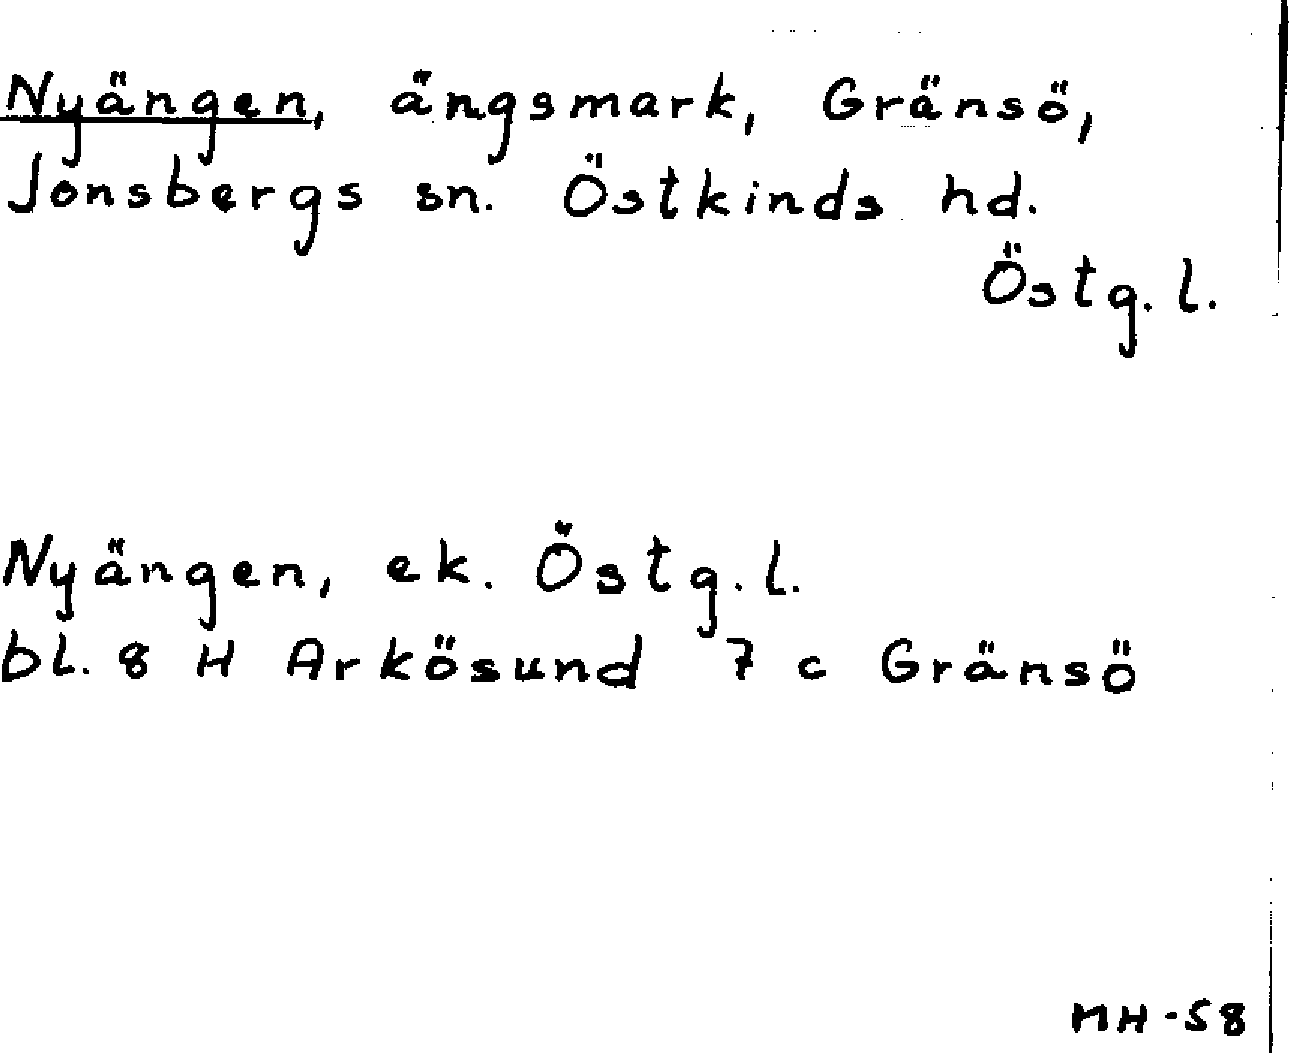 Nyängen, ängsmark, Gränsö,
Jonsbergs sn. Östkinds hd.
Östg. l.
Nyängen, ek. Östg. l.
bl. 8 H Arkösund 7 c Gränsö
MH-58